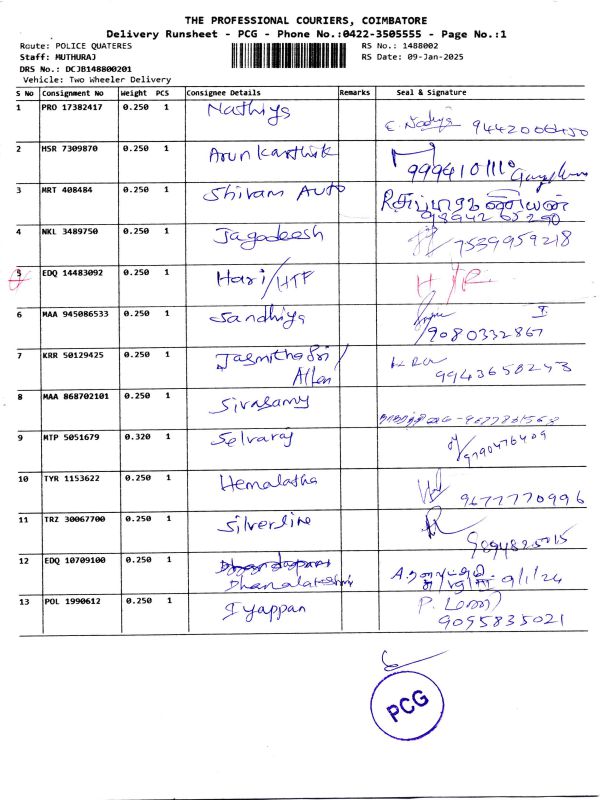 THE PROFESSIONAL COURIERS, COIMBATORE
Delivery Runsheet - PCG - Phone No.:0422-3505555 - Page No.:1
Route: POLICE QUATERES RS No.: 1488002
Staff: MUTHURAJ RS Date: 09-Jan-2025
DRS No.: DCJB148800201
Vehicle: Two Wheeler Delivery
S No Consignment No Weight PCS Consignee Details Remarks Seal & Signature
1 PRO 17382417 0.250 1 Nathiya
9442006450
2 MSR 7309870 0.250 1 Arun Karthik
3 MRT 408484 0.250 1 Shivam Auto
98942 65290
4 NKL 3489750 0.250 1 Jagadeesh 7539959218
5 EDQ 14483092 0.250 1 Hari/HTF
6 MAA 945086533 0.250 1 Sandhiya
9080332867
7 KRR 50129425 0.250 1 JasmithaSri/
Allen 9943658243
8 MAA 868702101 0.250 1 Sivasamy
9 MTP 5051679 0.320 1 Selvaraj
9790476409
10 TYR 1153622 0.250 1 Hemalatha
9677770996
11 TRZ 30067700 0.250 1 Silverline
9894825015
12 EDQ 10709100 0.250 1
Dhanalatchmi 9/1/24
13 POL 1990612 0.250 1 Iyappan P.
9095835021
PCG